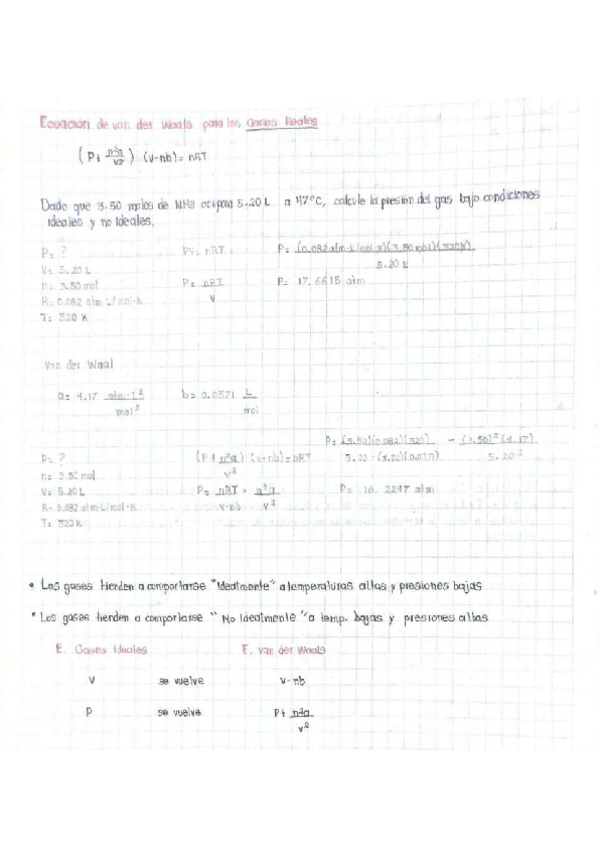 Ecuación de van der Waals para los Gases Reales
(P+ n²a/V²) (v-nb)= nRT
Dado que 3.50 moles de NH3 ocupan 5.20 L a 47°C, calcule la presión del gas bajo condiciones
ideales y no ideales.
P= ? PV= nRT P= (0.082 atm·L/mol·K)(3.50 mol)(320K) / 5.20 L
V= 5.20 L
n= 3.50 mol P= nRT / V P= 17.6615 atm
R= 0.082 atm·L/mol·K
T= 320 K
Van der Waal
a= 4.17 atm·L²/mol² b= 0.0371 L/mol
P= (3.50)(0.082)(320) / 5.20-(3.50)(0.0371) - (3.50)²(4.17) / 5.20²
P= ? (P+ n²a/v²) (v-nb)=nRT
n= 3.50 mol
V= 5.20 L P= nRT/v-nb + n²a/v² P= 16.2247 atm
R= 0.082 atm·L/mol·K
T= 320 K
• Los gases tienden a comportarse "Idealmente" a temperaturas altas y presiones bajas
• Los gases tienden a comportarse "No Idealmente" a temp. bajas y presiones altas
E. Gases Ideales E. van der Waals
V se vuelve v-nb
P se vuelve P+ n²a/v²